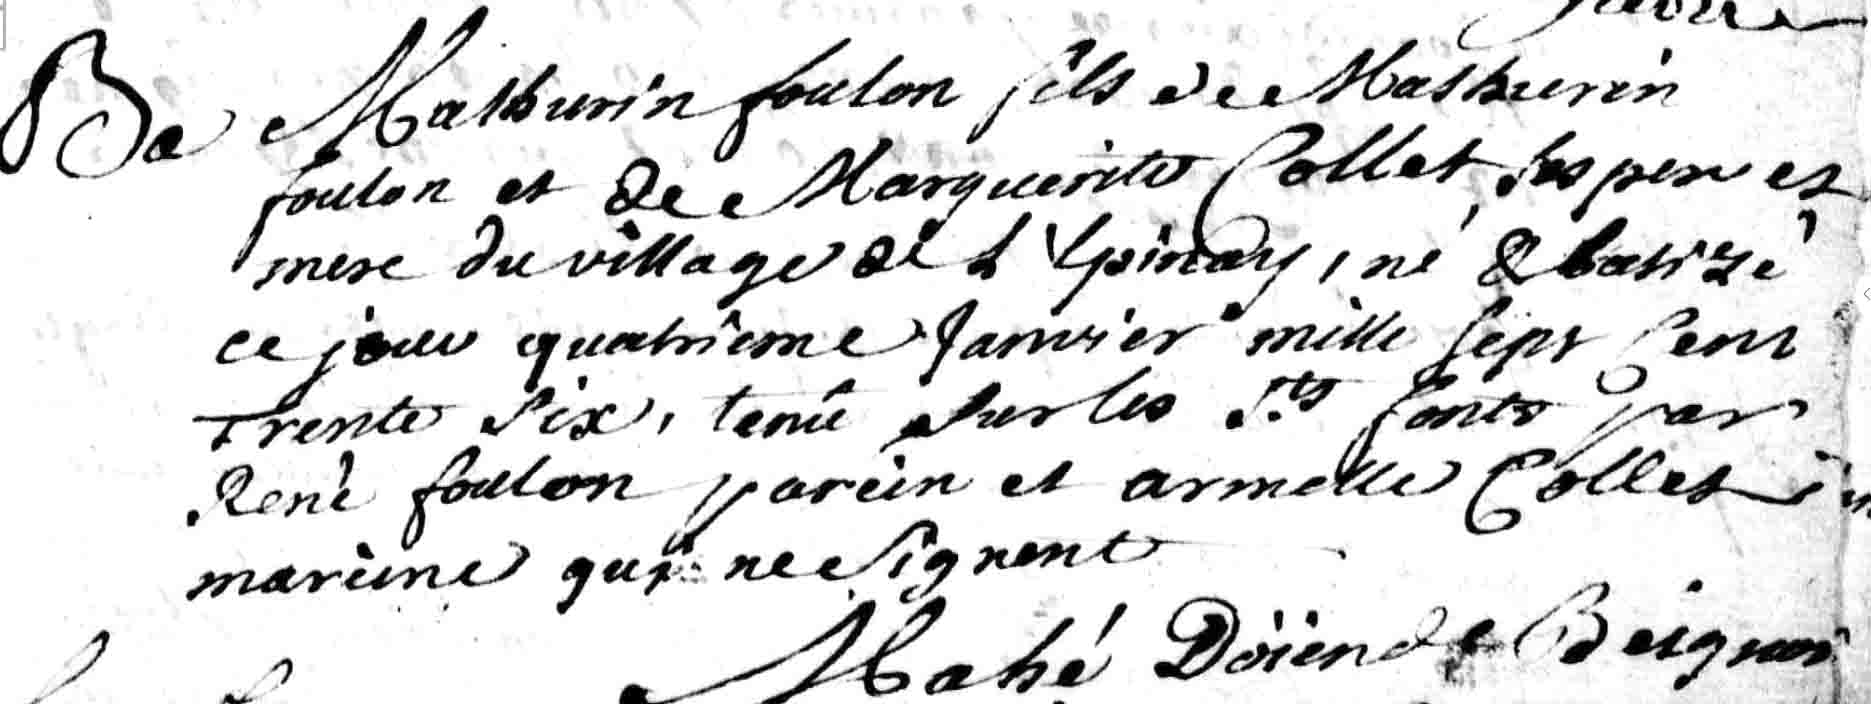 Ba Mathurin foulon fils de Mathurin
foulon et de Marguerite Collet ses pere et
mere du village de L'Epinay, né & batizé
ce jour quatrieme Janvier mille sept cent
trente six, tenû sur les Sts fonts par
René foulon parein et armelle Collet
mareine qui ne signent
Mahé Doïen de Beignon